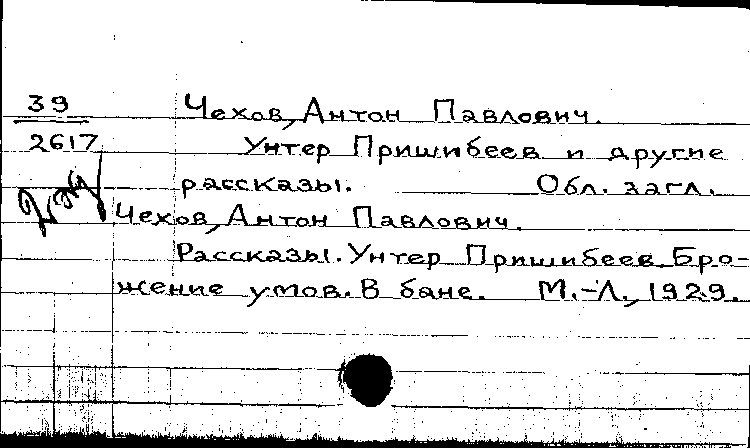 39
2617
Чехов, Антон Павлович.
Унтер Пришибеев и другие
рассказы. Обл. загл.
Чехов, Антон Павлович.
Рассказы. Унтер Пришибеев. Бро-
жение умов. В бане. М.-Л., 1929.